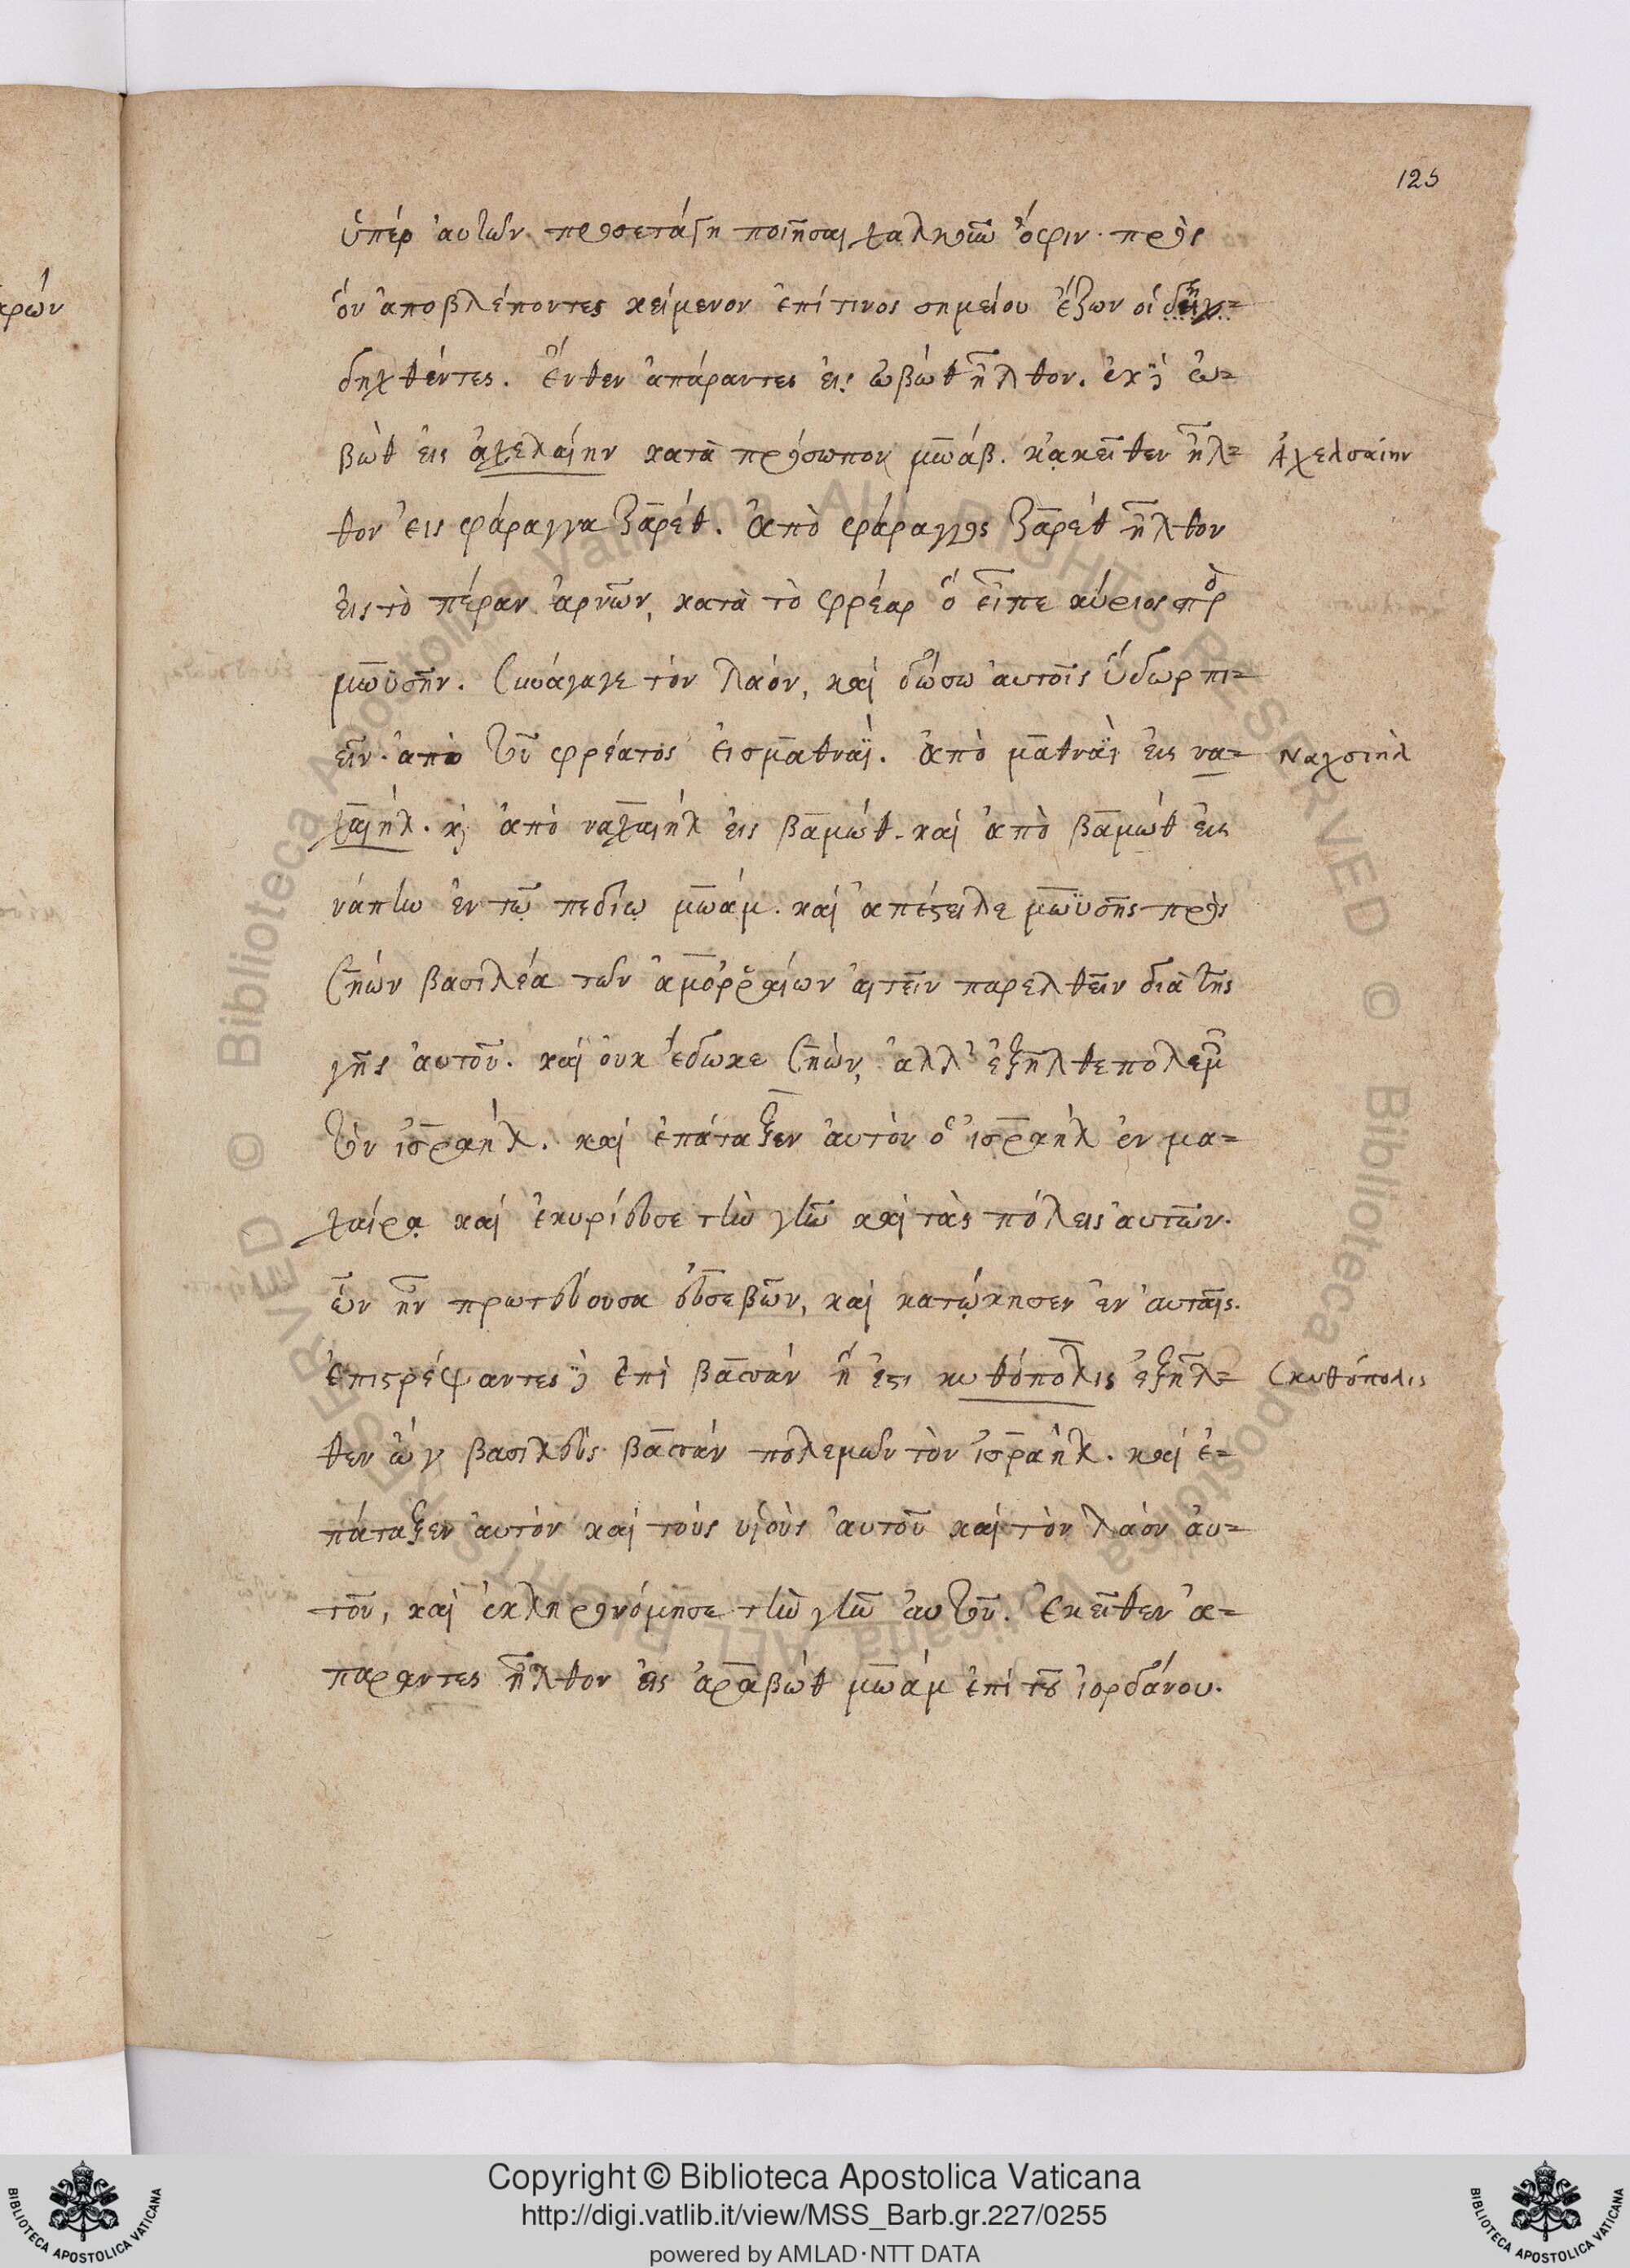 125
ὑπέρ ἀυτῶν προσετάγη ποιῆσαι χαλκοῦν ὄφιν· πρὸς
ὃν ἀποβλέποντες κείμενον ἐπί τινος σημείου ἔζων οἱ
δηχθέντες. Ἔνθεν ἀπάραντες εἰς ὠβώθ ἦλθον. ἐκ δὲ ὠ=
βὼθ εἰς ἀχελαίην κατὰ πρόσωπον μωάβ. κἀκεῖθεν ἦλ=
Ἀχελσαίην
θον εἰς φάραγγα ζαρέθ. Ἀπὸ φάραγγος ζαρέθ ἦλθον
εἰς τὸ πέραν ἀρνῶν, κατὰ τὸ φρέαρ ὃ εἶπε κύριος πρὸ
μωϋσῆν. Συνάγαγε τὸν λαόν, καὶ δώσω ἀυτοῖς ὕδωρ πι=
εῖν. ἀπὸ τοῦ φρέατος εἰς μαθναΐ. Ἀπὸ μαθναΐ εἰς να=
Ναχσιὴλ
χαιήλ. κỳ ἀπὸ ναχαιήλ εἰς βαμώθ. καὶ ἀπὸ βαμώθ εἰς
νάπην ἐν τῷ πεδίῳ μωάμ. καὶ ἀπέστειλε μωϋσῆς πρὸς
Σηών βασιλέα τῶν ἀμορραίων ἀιτεῖν παρελθεῖν διὰ τῆς
γῆς ἀυτοῦ. καὶ οὐκ ἔδωκε Σηών, ἀλλ' ἐξῆλθε πολεμῶν
τὸν ἰσραήλ. καὶ ἐπάταξεν ἀυτὸν ὁ ἰσραήλ ἐν μα=
χαίρᾳ καὶ ἐκυρίευσε τὴν γῆν καὶ τὰς πόλεις ἀυτῶν.
ὧν ἦν πρωτεύουσα ἐυσεβῶν, καὶ κατῴκησεν ἐν ἀυταῖς.
ἐπιστρέψαντες δὲ ἐπὶ βασάν ἥ ἐστι κυθόπολις ἐξῆλ=
Σκυθόπολις
θεν ὢγ βασιλεὺς βασάν πολεμῶν τὸν ἰσραήλ. καὶ ἐ=
πάταξεν ἀυτὸν καὶ τοὺς υἱοὺς ἀυτοῦ καὶ τὸν λαὸν ἀυ=
τοῦ, καὶ ἐκληρονόμησε τὴν γῆν ἀυτοῦ. Ἐκεῖθεν ἀ=
παραντες ἦλθον εἰς ἀραβώθ μωάμ ἐπὶ τοῦ ἰορδάνου.
Copyright © Biblioteca Apostolica Vaticana
http://digi.vatlib.it/view/MSS_Barb.gr.227/0255
powered by AMLAD·NTT DATA